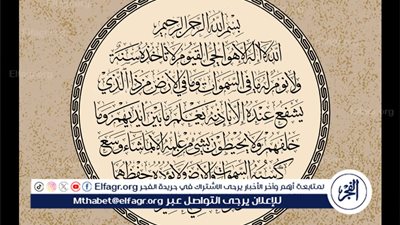 بسم الله الرحمن الرحيم
الله لا إله إلا هو الحي القيوم لا تأخذه سنة
ولا نوم له ما في السموات وما في الأرض من ذا الذي
يشفع عنده إلا بإذنه يعلم ما بين أيديهم وما
خلفهم ولا يحيطون بشيء من علمه إلا بما شاء وسع
كرسيه السموات والأرض ولا يؤده حفظهما
لمتابعة أهم وآخر الأخبار يرجى الاشتراك في جريدة الفجر Elfagr.org
للإعلان يرجى التواصل عبر Mthabet@elfagr.org
الفجر